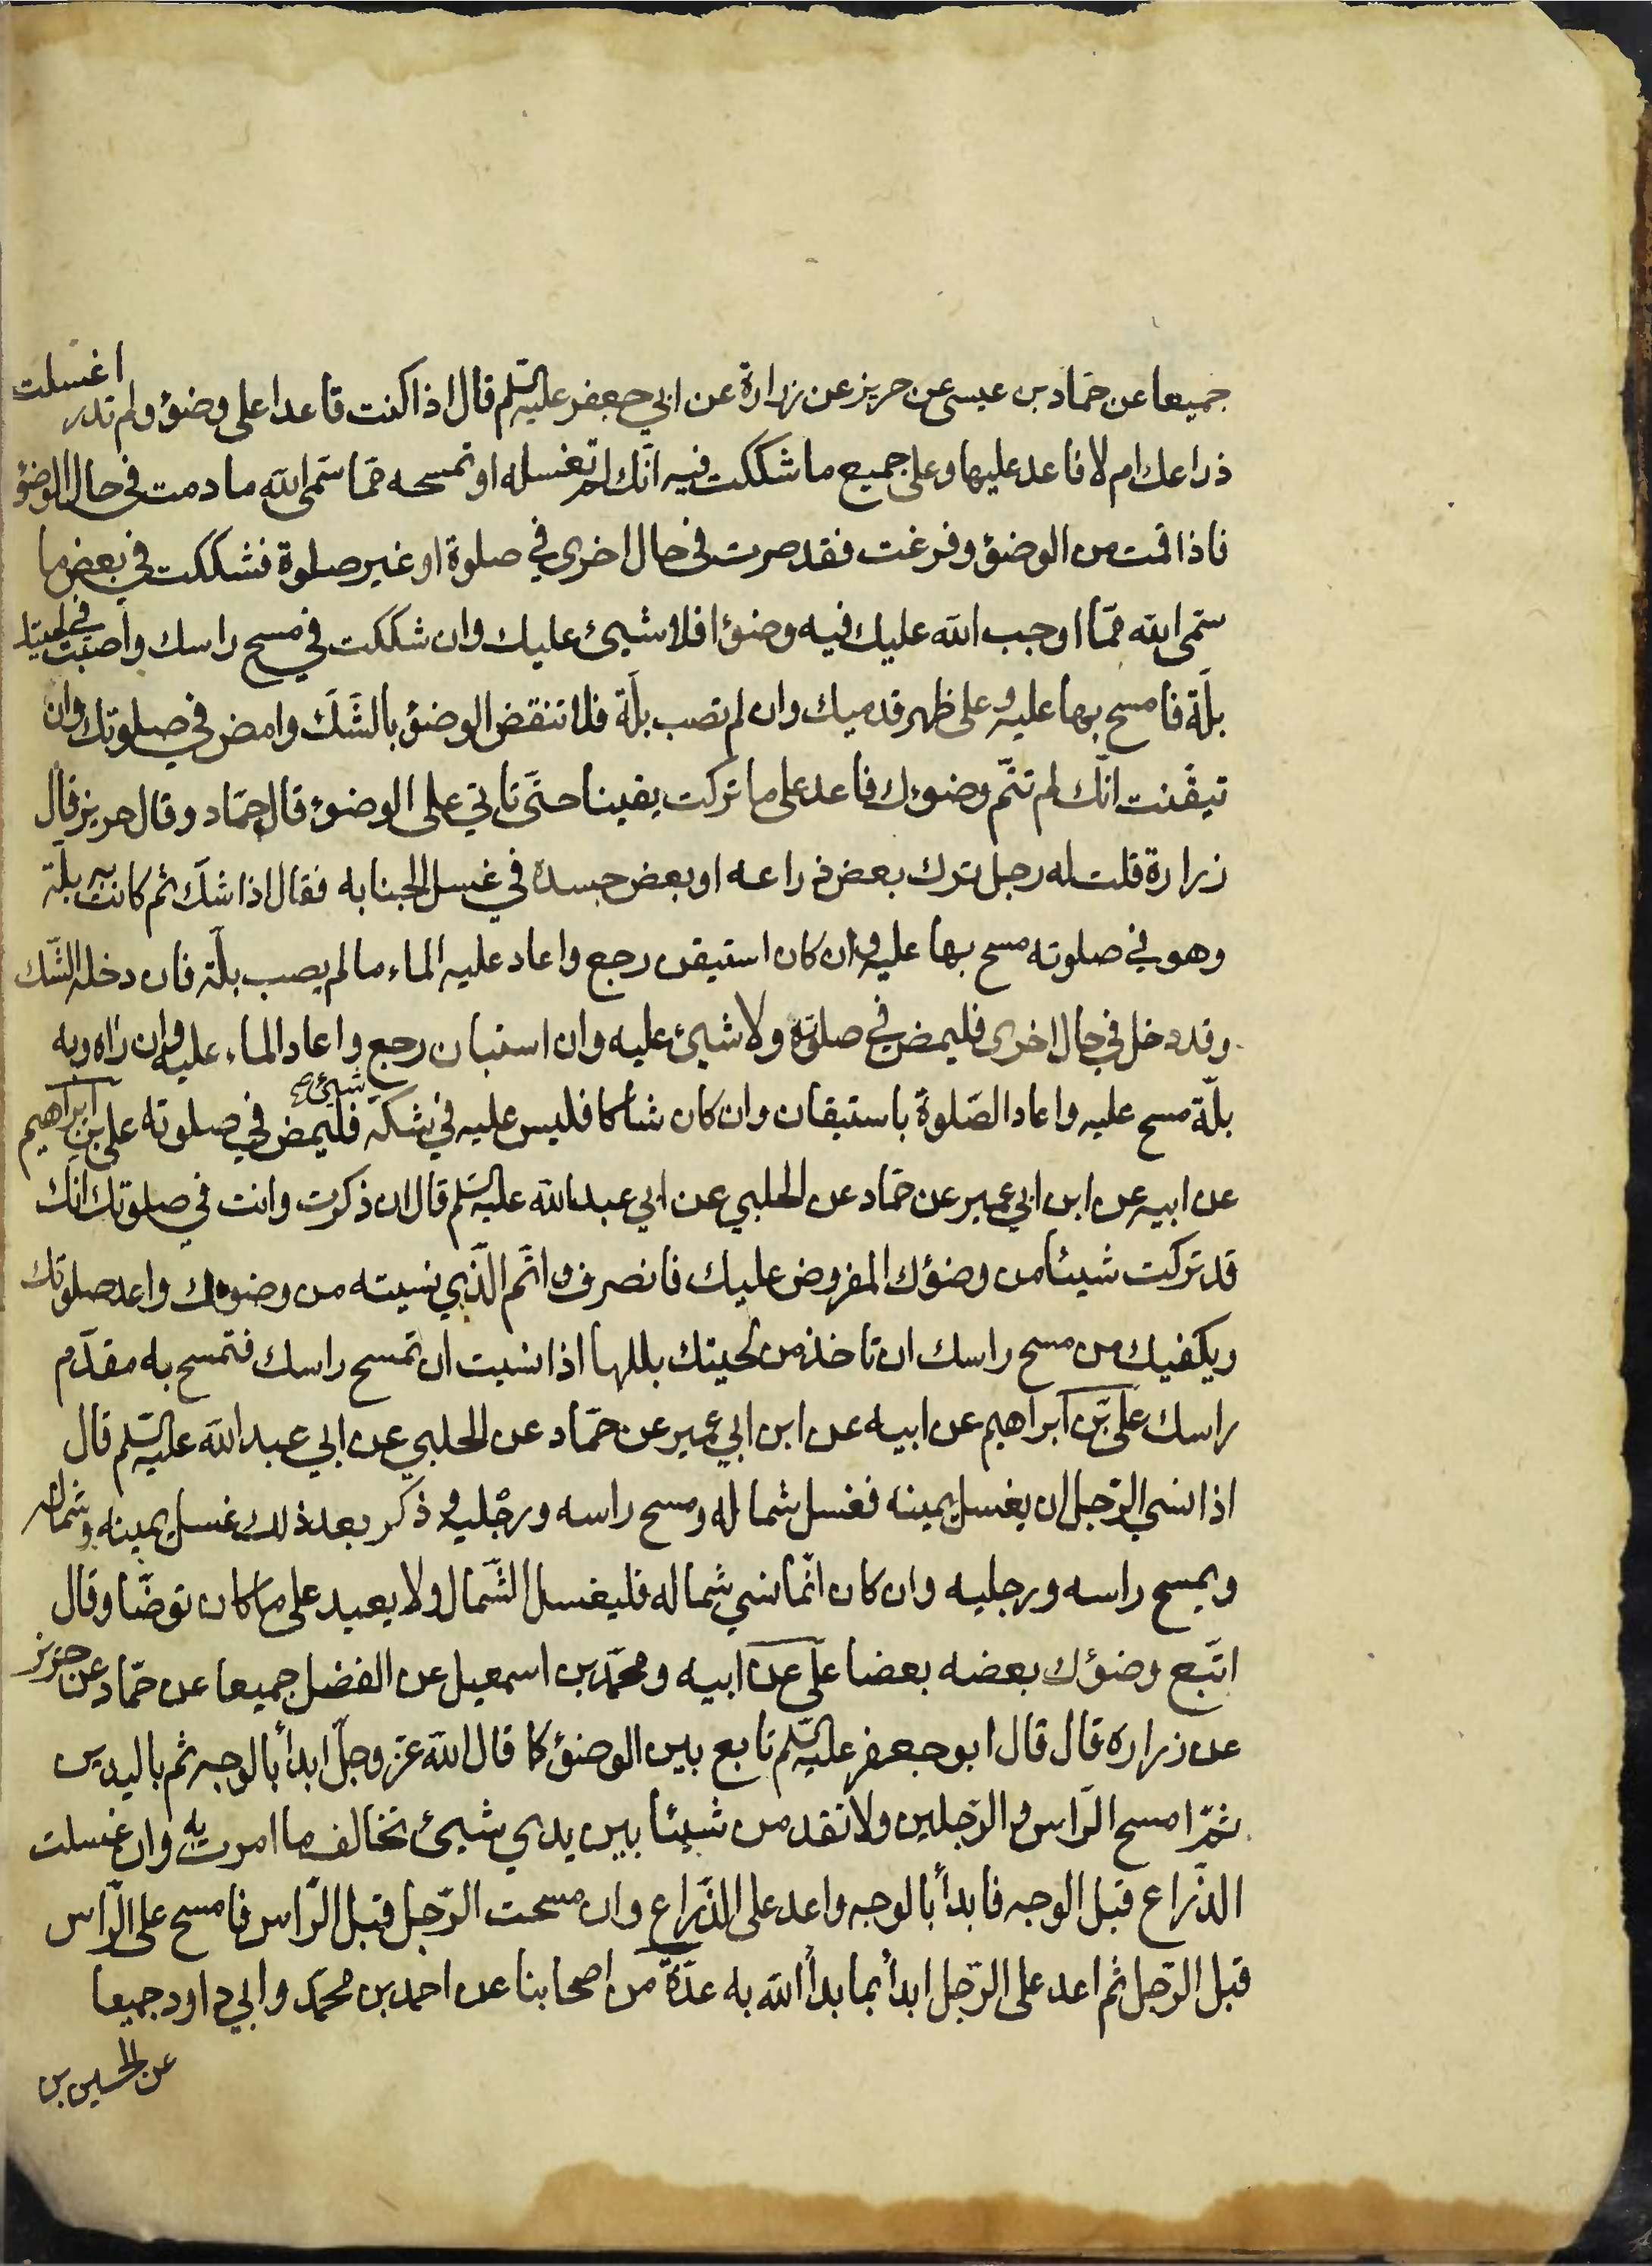 جميعا عن حمّاد بن عيسى عن حريز عن زرارة عن ابي جعفر عليه السّلم قال اذا كنت قاعدا على وضوء ولم تدر اغسلت
ذراعك ام لا فاعد عليها وعلى جميع ما شككت فيه انّك لم تغسله او تمسحه ممّا سمّى الله ما دمت في حال الوضوء
فاذا قمت من الوضوء وفرغت فقد صرت في حال اخرى في صلوة او غير صلوة فشككت في بعض ما
سمّى الله ممّا اوجب الله عليك فيه وضوءا فلا شيئ عليك وان شككت في مسح راسك واصبت في لحيتك
بلّة فامسح بها عليه وعلى ظهر قدميك وان لم تصب بلّة فلا تنقض الوضوء بالشّكّ وامض في صلوتك وان
تيقّنت انّك لم تتمّ وضوءك فاعد على ما تركت يقينا حتّى تاتي على الوضوء قال حمّاد وقال حريز قال
زرارة قلت له رجل ترك بعض ذراعه او بعض جسده في غسل الجنابه فقال اذا شكّ ثم كانت به بلّة
وهو في صلوته مسح بها عليه وان كان استيقن رجع واعاد عليه الماء ما لم يصب بلّة فان دخله الشّك
وقد دخل في حال اخرى فليمض في صلوته ولا شيئ عليه وان استبان رجع واعاد الماء عليه وان راه وبه
بلّة مسح عليه واعاد الصّلوة باستيقان وان كان شاكا فليس عليه في شكّه شيئ فليمض في صلوته علي بن ابراهيم
عن ابيه عن ابن ابي عمير عن حمّاد عن الحلبي عن ابي عبد الله عليه السّلم قال ان ذكرت وانت في صلوتك انك
قد تركت شيئا من وضوؤك المفروض عليك فانصرف واتّم الّذي نسيته من وضوءك واعد صلوتك
ويكفيك من مسح راسك ان تاخذ من لحيتك بللها اذا نسيت ان تمسح راسك فتمسح به مقدّم
راسك علي بن ابراهيم عن ابيه عن ابن ابي عمير عن حمّاد عن الحلبي عن ابي عبد الله عليه السّلم قال
اذا نسي الرّجل ان يغسل يمينه فغسل شماله ومسح راسه ورجليه وذكر بعد ذلك غسل يمينه وشماله
ويمسح راسه ورجليه وان كان انّما نسي شماله فليغسل الشّمال ولا يعيد على ما كان توضّا وقال
اتّبع وضوءك بعضه بعضا علي عن ابيه ومحمّد بن اسمعيل عن الفضل جميعا عن حمّاد عن حريز
عن زراره قال قال ابو جعفر عليه السّلم تابع بين الوضوء كما قال الله عزّ وجلّ ابدأ بالوجه ثم باليدين
ثمّ امسح الرّاس والرّجلين ولا تقدمن شيئا بين يدي شيئ تخالف ما امرت به وان غسلت
الذّراع قبل الوجه فابدأ بالوجه واعد على الذّراع وان مسحت الرّجل قبل الرّاس فامسح على الرّاس
قبل الرّجل ثم اعد على الرّجل ابدأ بما بدأ الله به عدّة من اصحابنا عن احمد بن محمّد وابي داود جميعا
عن الحسين بن